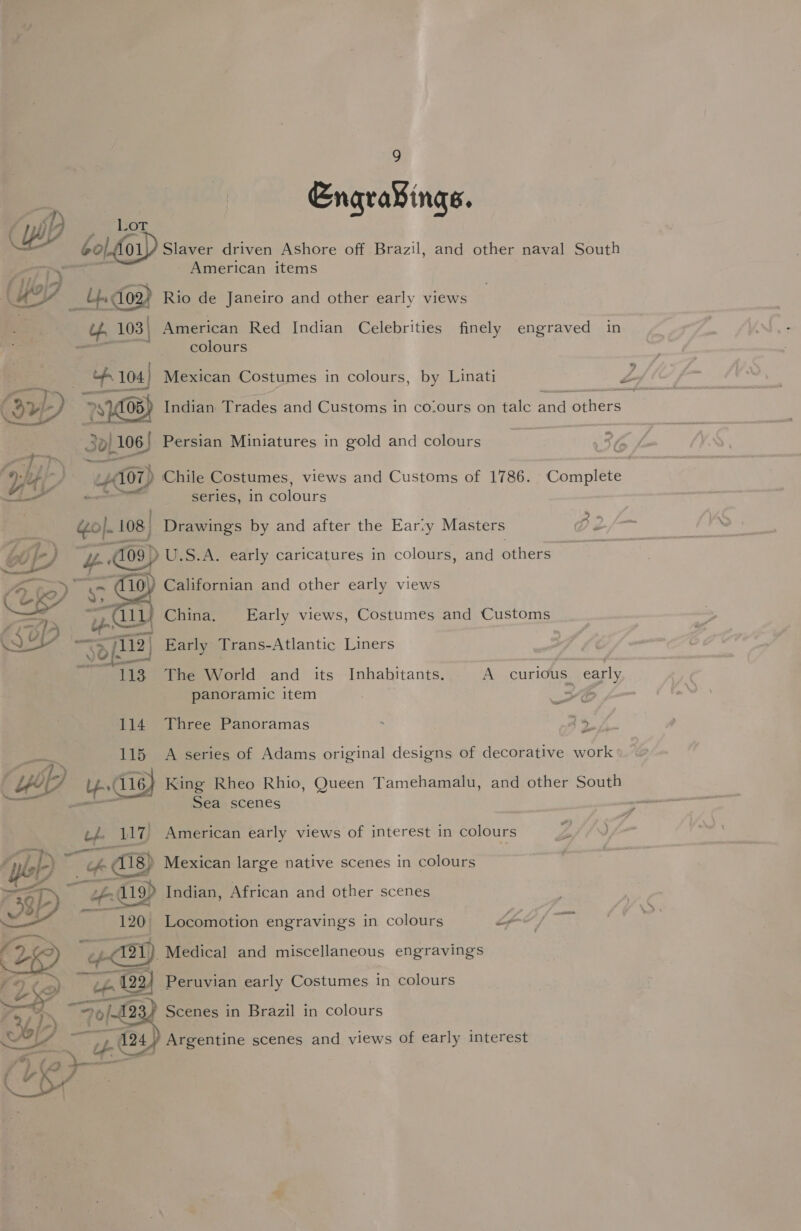 9
Engravings.
LOT
101 Slaver driven Ashore off Brazil, and other naval South
American items
102 Rio de Janeiro and other early views
103 American Red Indian Celebrities finely engraved in
colours
104 Mexican Costumes in colours, by Linati
105 Indian Trades and Customs in colours on talc and others
106 Persian Miniatures in gold and colours
107 Chile Costumes, views and Customs of 1786. Complete
series, in colours
108 Drawings by and after the Early Masters
109 U.S.A. early caricatures in colours, and others
110 Californian and other early views
111 China. Early views, Costumes and Customs
112 Early Trans-Atlantic Liners
113 The World and its Inhabitants. A curious early
panoramic item
114 Three Panoramas
115 A series of Adams original designs of decorative work
116 King Rheo Rhio, Queen Tamehamalu, and other South
Sea scenes
117 American early views of interest in colours
118 Mexican large native scenes in colours
119 Indian, African and other scenes
120 Locomotion engravings in colours
121 Medical and miscellaneous engravings
122 Peruvian early Costumes in colours
123 Scenes in Brazil in colours
124 Argentine scenes and views of early interest